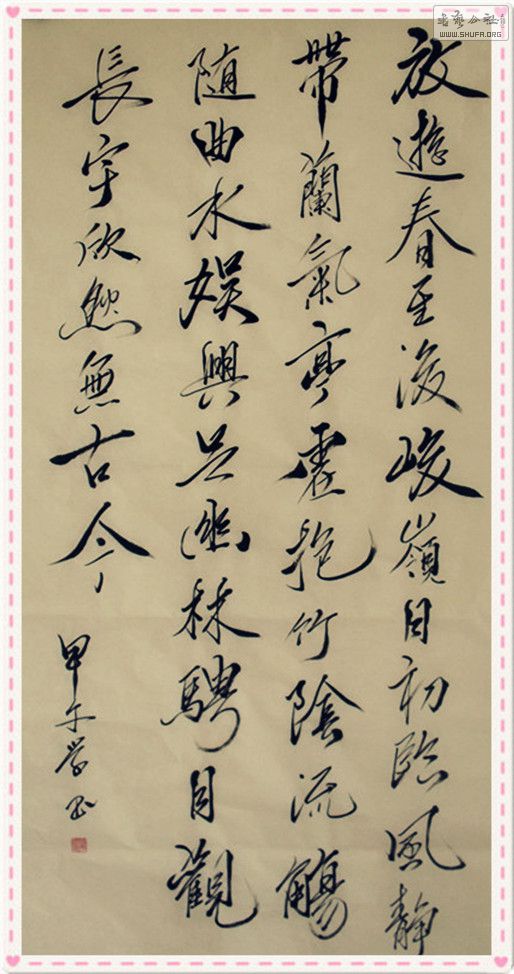 書藝公社
WWW.SHUFA.ORG
放遊春至後峻嶺目初臨風靜
帶蘭氣亭虛抱竹陰流觴
随曲水娱興足幽林騁目觀
長宇欣然無古今
甲午学书